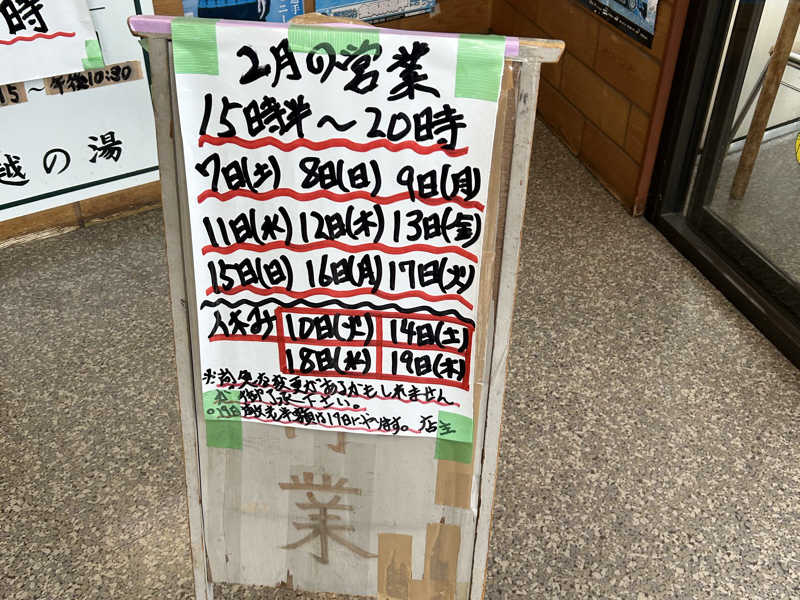 時
15～午後10:30
越の湯
2月の営業
15時半～20時
7日(土) 8日(日) 9日(月)
11日(水) 12日(木) 13日(金)
15日(日) 16日(月) 17日(火)
休み 10日(火) 14日(土)
18日(水) 19日(木)
変更があるかもしれません
御了承下さい。
店主
業